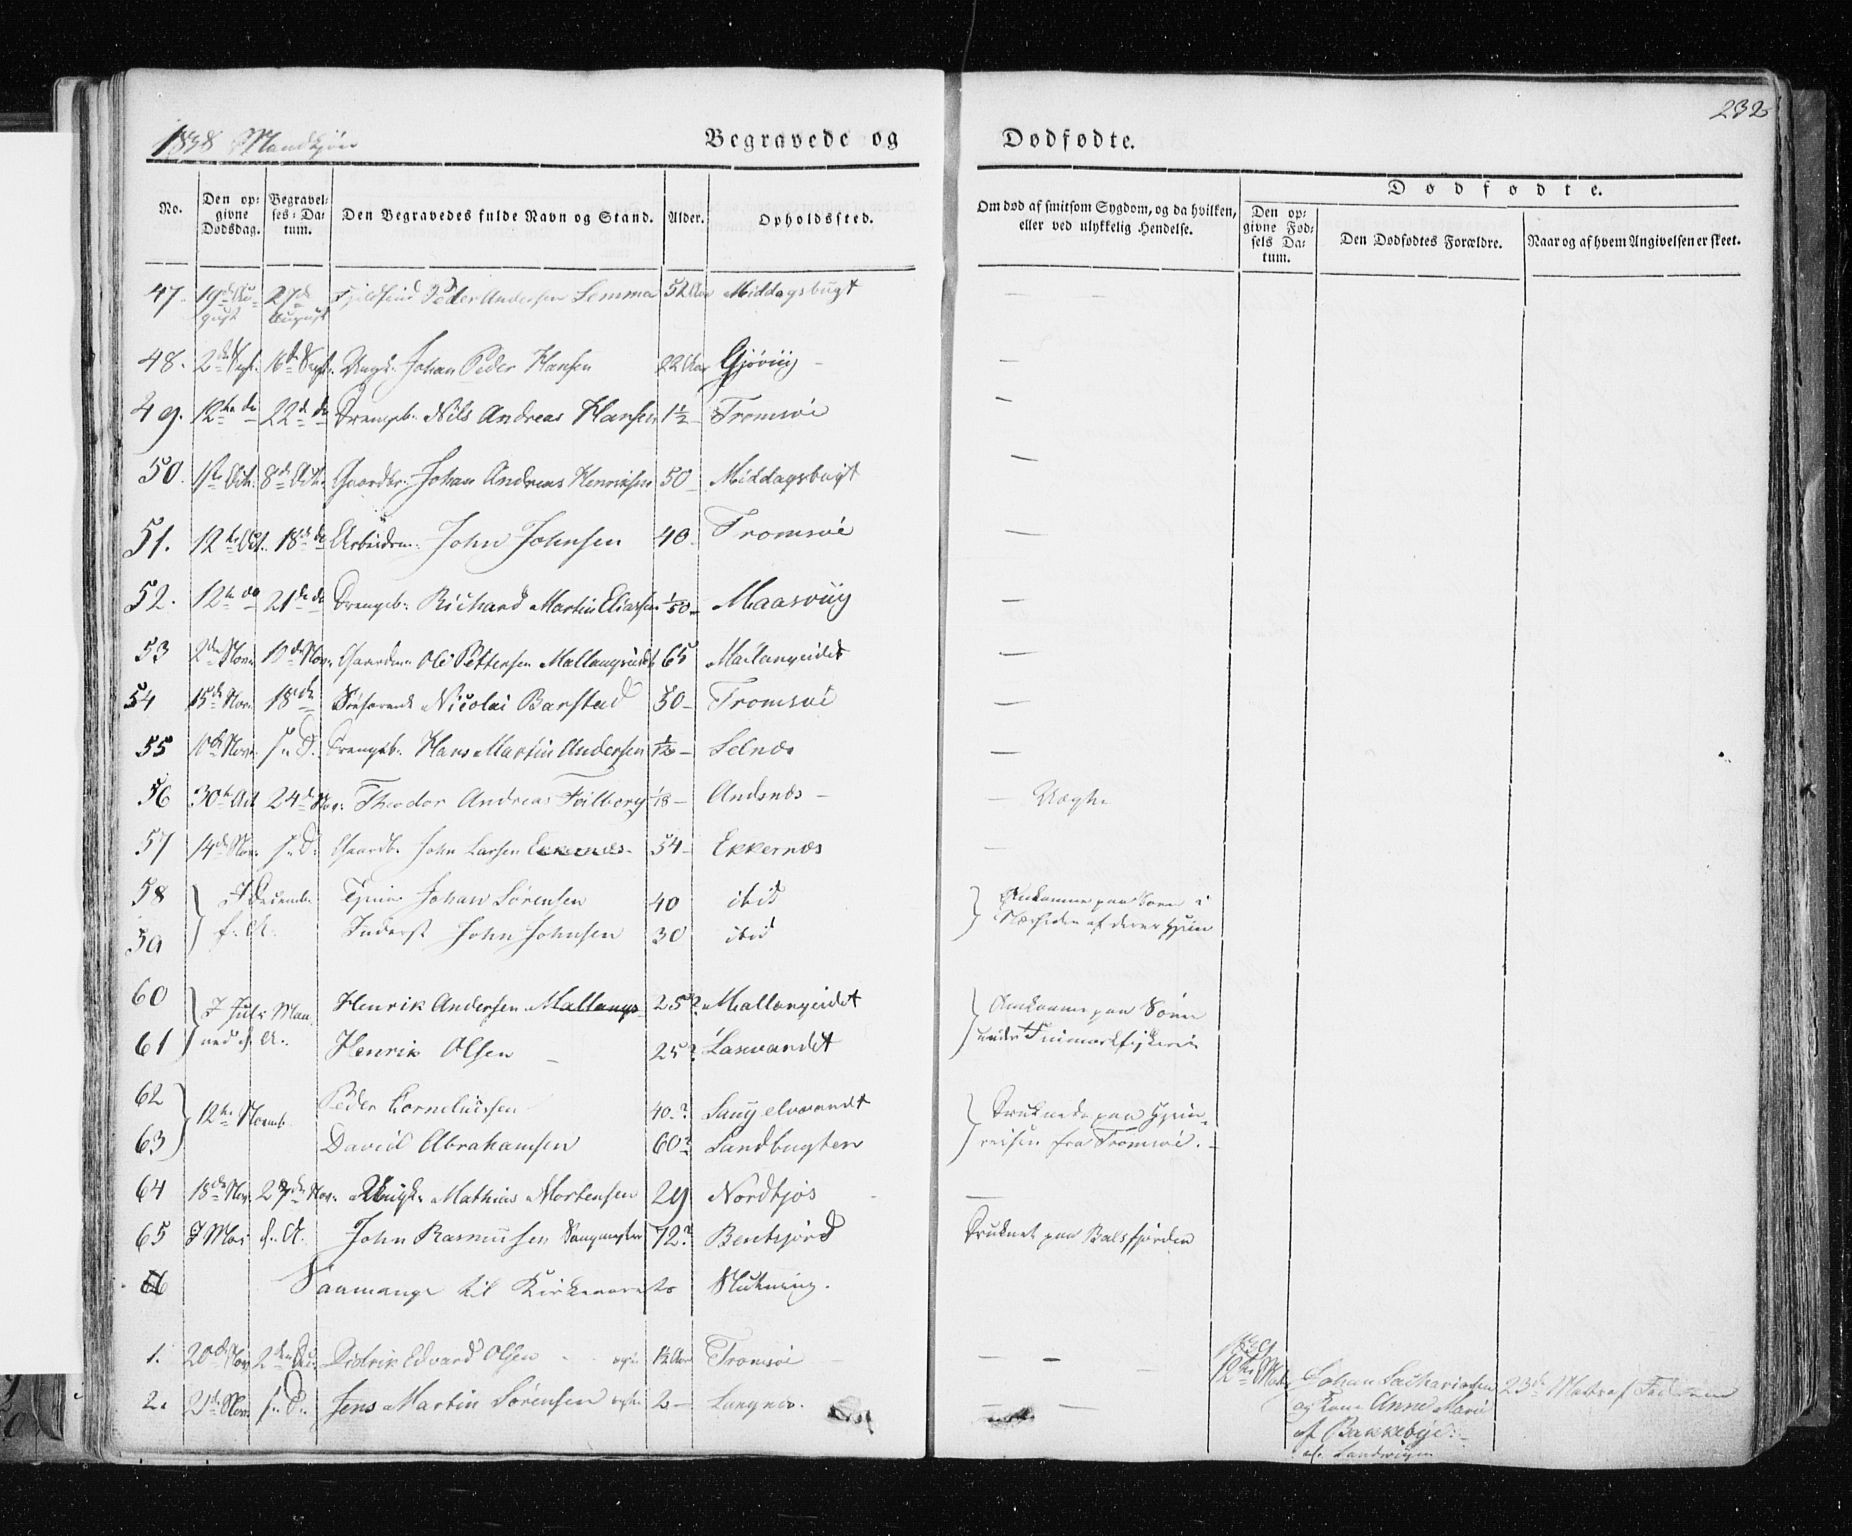 232
1838 Mandkjøn
Begravede og Dødfødte.
No.
Den opgivne Dødsdag.
Begravelses-Datum.
Den Begravedes fulde Navn og Stand.
Alder.
Opholdssted.
Om død af smitsom Sygdom, og da hvilken, eller ved ulykkelig Hendelse.
Dødfødte.
Den opgivne Fødsels Datum.
Den Dødfødtes Forældre.
Naar og af hvem Angivelsen er skeet.
47. 19de August 27de August Peder Andersen Lemma 52 Aar Middagsbugt — —
48. 2den Sept. 16de Sept. Ungk. Johan Peder Hansen 22 Aar Gjøviig — —
49. 12te do 22de do Drengeb. Nils Andreas Hansen 1½ Tromsøe —
50. 1ste Oct. 8de Oct. Gaardbr. Johan Andreas Henriksen 50 — Middagsbugt —
51. 12te Oct. 18de do Arbeidsm. John Johnsen 40 — Tromsøe —
52. 12te do 21de do Drengeb. Richard Martin Eliassen 1/50 — Maasviig —
53 2den Nov. 10de Nov. Gaardm. Ole Pettersen Mallangseidet 65 Mallangeidet —
54 15de Nov. 18de Nicolai Barstad 30 — Tromsøe —
55 10de Nov. s. D. Drengeb. Hans Martin Andersen 1/12 — Selnæs —
56 30te Oct 24de Nov. Theodor Andreas Feilborg 1/18 — Andsnæs — —
57 14de Nov. s. D. Gaardb. John Larsen Ekkernæs 54 — Ekkernæs —
58 I December Johan Sørensen 40 ibid Omkomne paa Søen i
59 f. A. Inderst John Johnsen 30 ibid Nærheden af deres Hjem
60 I Juli Maaned f. A. Henrik Andersen Mallangs 25? Mallangeidet Omkomne paa Søen
61 Henrik Olsen — 25? Laxvandet under Finmarkfiskeriet
62 12te Novemb. Peder Corneliussen 40? Saugelvvandt Druknede paa Hjem-
63 David Abrahamsen 60? Sandbugten reisen fra Tromsøe. —
64 18de Nov. 27de Nov. Ungk. Mathias Mortensen 29 Nordkjos — —
65 I Mai f. A. John Rasmussen 72? Bentsjord Druknet paa Balsfjorden
66 Saamange til Kirkeaarets Slutning.
1. 20de Nov. 2den Dec. Didrik Edvard Olsen 1½ Aar Tromsøe — — —
1839
12te Mai Johan Zachariasen 23de
2. 21de Nov. s. D. Jens Martin Sørensen 2 — Langnes. —
og Kone Anne Marie
af Bakkebye